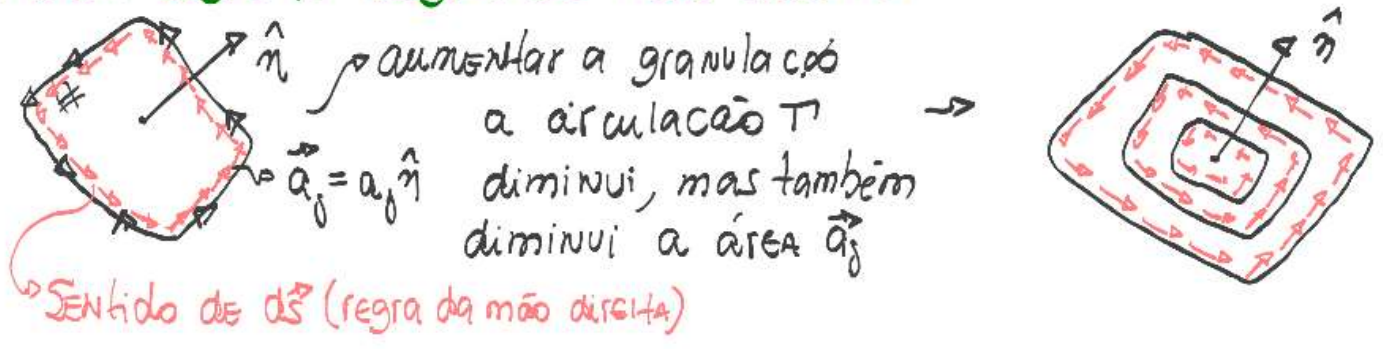 n̂
aumentar a granulação
a circulação Γ
a⃗ⱼ = aⱼ n̂
diminui, mas também
diminui a área a⃗ⱼ
Sentido de ds⃗ (regra da mão direita)
n̂